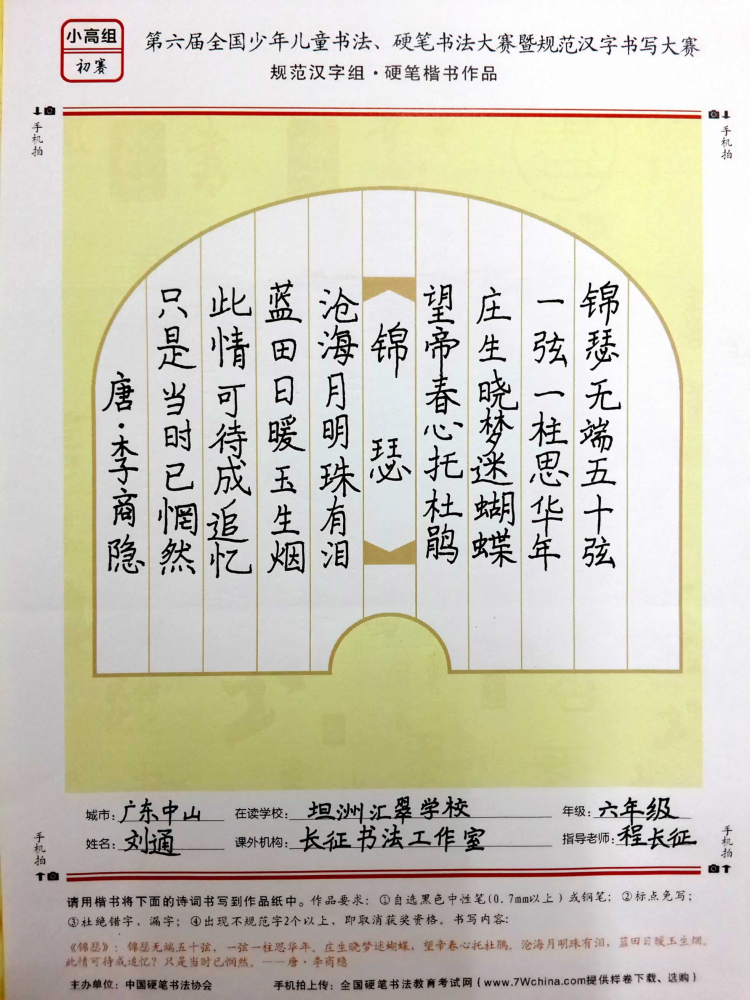 小高组
初赛
第六届全国少年儿童书法、硬笔书法大赛暨规范汉字书写大赛
规范汉字组·硬笔楷书作品
手机拍
手机拍
锦瑟无端五十弦
一弦一柱思华年
庄生晓梦迷蝴蝶
望帝春心托杜鹃
锦瑟
沧海月明珠有泪
蓝田日暖玉生烟
此情可待成追忆
只是当时已惘然
唐·李商隐
城市：广东中山 在读学校：坦洲汇翠学校 年级：六年级
姓名：刘通 课外机构：长征书法工作室 指导老师：程长征
手机拍
手机拍
请用楷书将下面的诗词书写到作品纸中。作品要求：①自选黑色中性笔(0.7mm以上）或钢笔；②标点免写；
③杜绝错字、漏字；④出现不规范字2个以上，即取消获奖资格。书写内容：
《锦瑟》：锦瑟无端五十弦，一弦一柱思华年。庄生晓梦迷蝴蝶，望帝春心托杜鹃。沧海月明珠有泪，蓝田日暖玉生烟。
此情可待成追忆？只是当时已惘然。——唐·李商隐
主办单位：中国硬笔书法协会 手机拍上传：全国硬笔书法教育考试网（www.7Wchina.com提供样卷下载、选购）